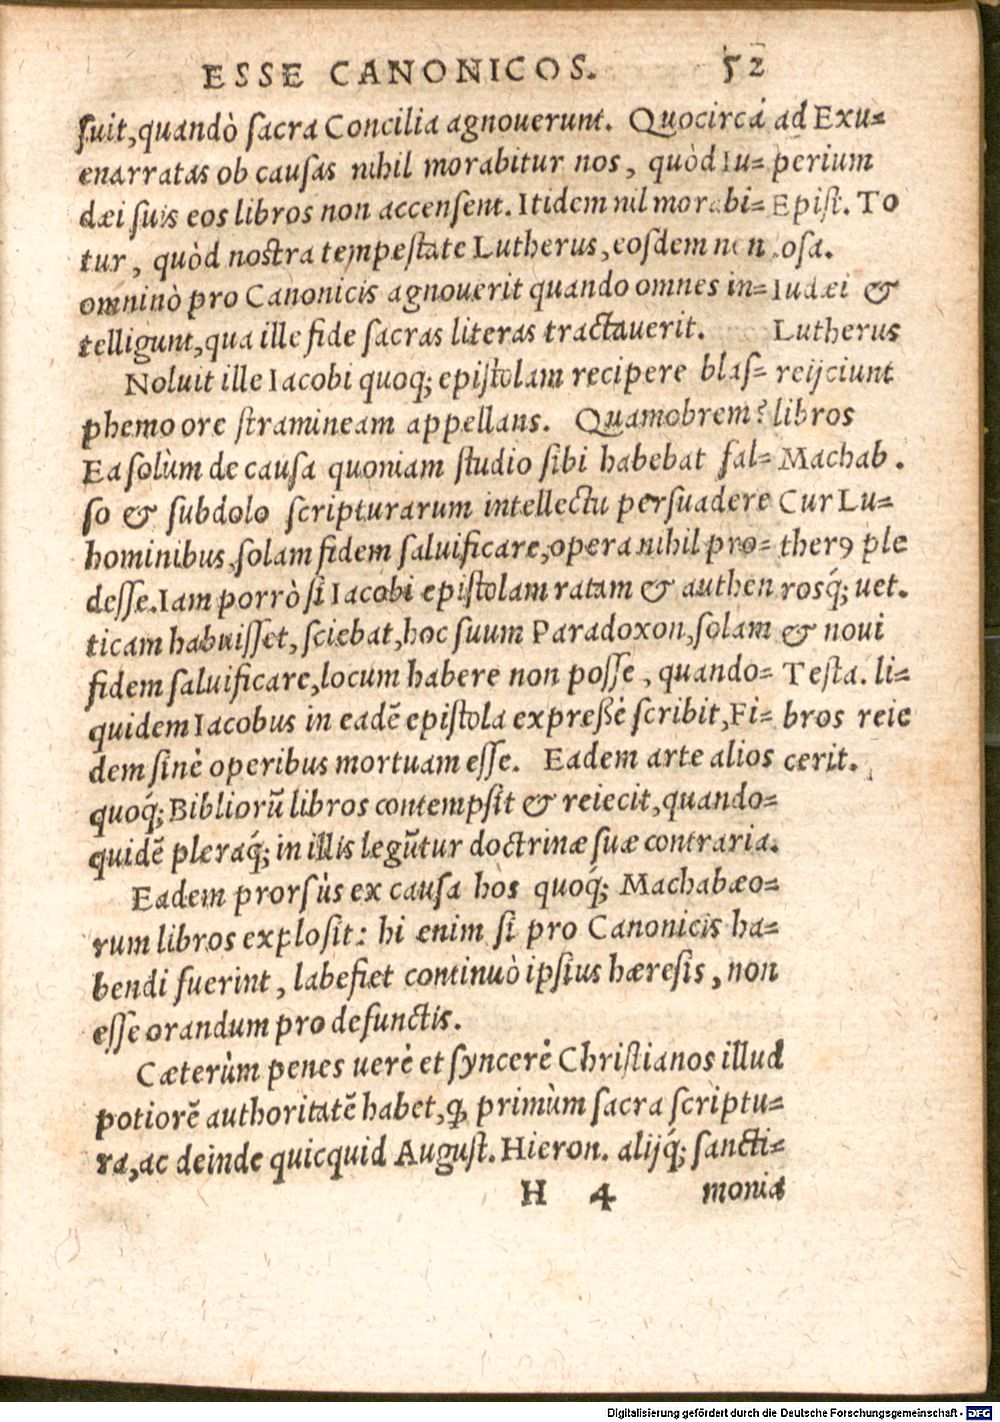 ESSE CANONICOS. 52
suit, quandò sacra Concilia agnouerunt. Quocircà
enarratas ob causas nihil morabitur nos, quòd Iu-
dæi suis eos libros non accensent. Itidem nil morabi-
tur, quòd nostra tempestate Lutherus, eosdem non
omninò pro Canonicis agnouerit quando omnes in-
telligunt, qua ille fide sacras literas tractauerit.
Noluit ille Iacobi quoq; epistolam recipere blas-
phemo ore stramineam appellans. Quamobrem?
Ea solùm de causa quoniam studio sibi habebat fal-
so & subdolo scripturarum intellectu persuadere
hominibus, solam fidem saluificare, opera nihil pro-
desse. Iam porrò si Iacobi epistolam ratam & authen
ticam habuisset, sciebat, hoc suum Paradoxon, solam
fidem saluificare, locum habere non posse, quando-
quidem Iacobus in eadē epistola expreßè scribit, Fi-
dem sinè operibus mortuam esse. Eadem arte alios
quoq́; Bibliorū libros contempsit & reiecit, quando-
quidē pleraq́; in illis legūtur doctrinæ suæ contraria.
Eadem prorsùs ex causa hos quoq́; Machabæo-
rum libros explosit: hi enim si pro Canonicis ha-
bendi fuerint, labefiet continuò ipsius hæresis, non
esse orandum pro defunctis.
Cæterùm penes uerè et syncerè Christianos illud
potiorē authoritatē habet, ꝙ primùm sacra scriptu-
ra, ac deinde quicquid August. Hieron. alijq́; sancti-
H 4 monia
ad Exu-
perium
Epist. To
osa.
Iudæi &
Lutherus
reijciunt
libros
Machab.
Cur Lu-
therꝰ ple
rosq́; uet.
& noui
Testa. li-
bros reie
cerit.
Digitalisierung gefördert durch die Deutsche Forschungsgemeinschaft - DFG